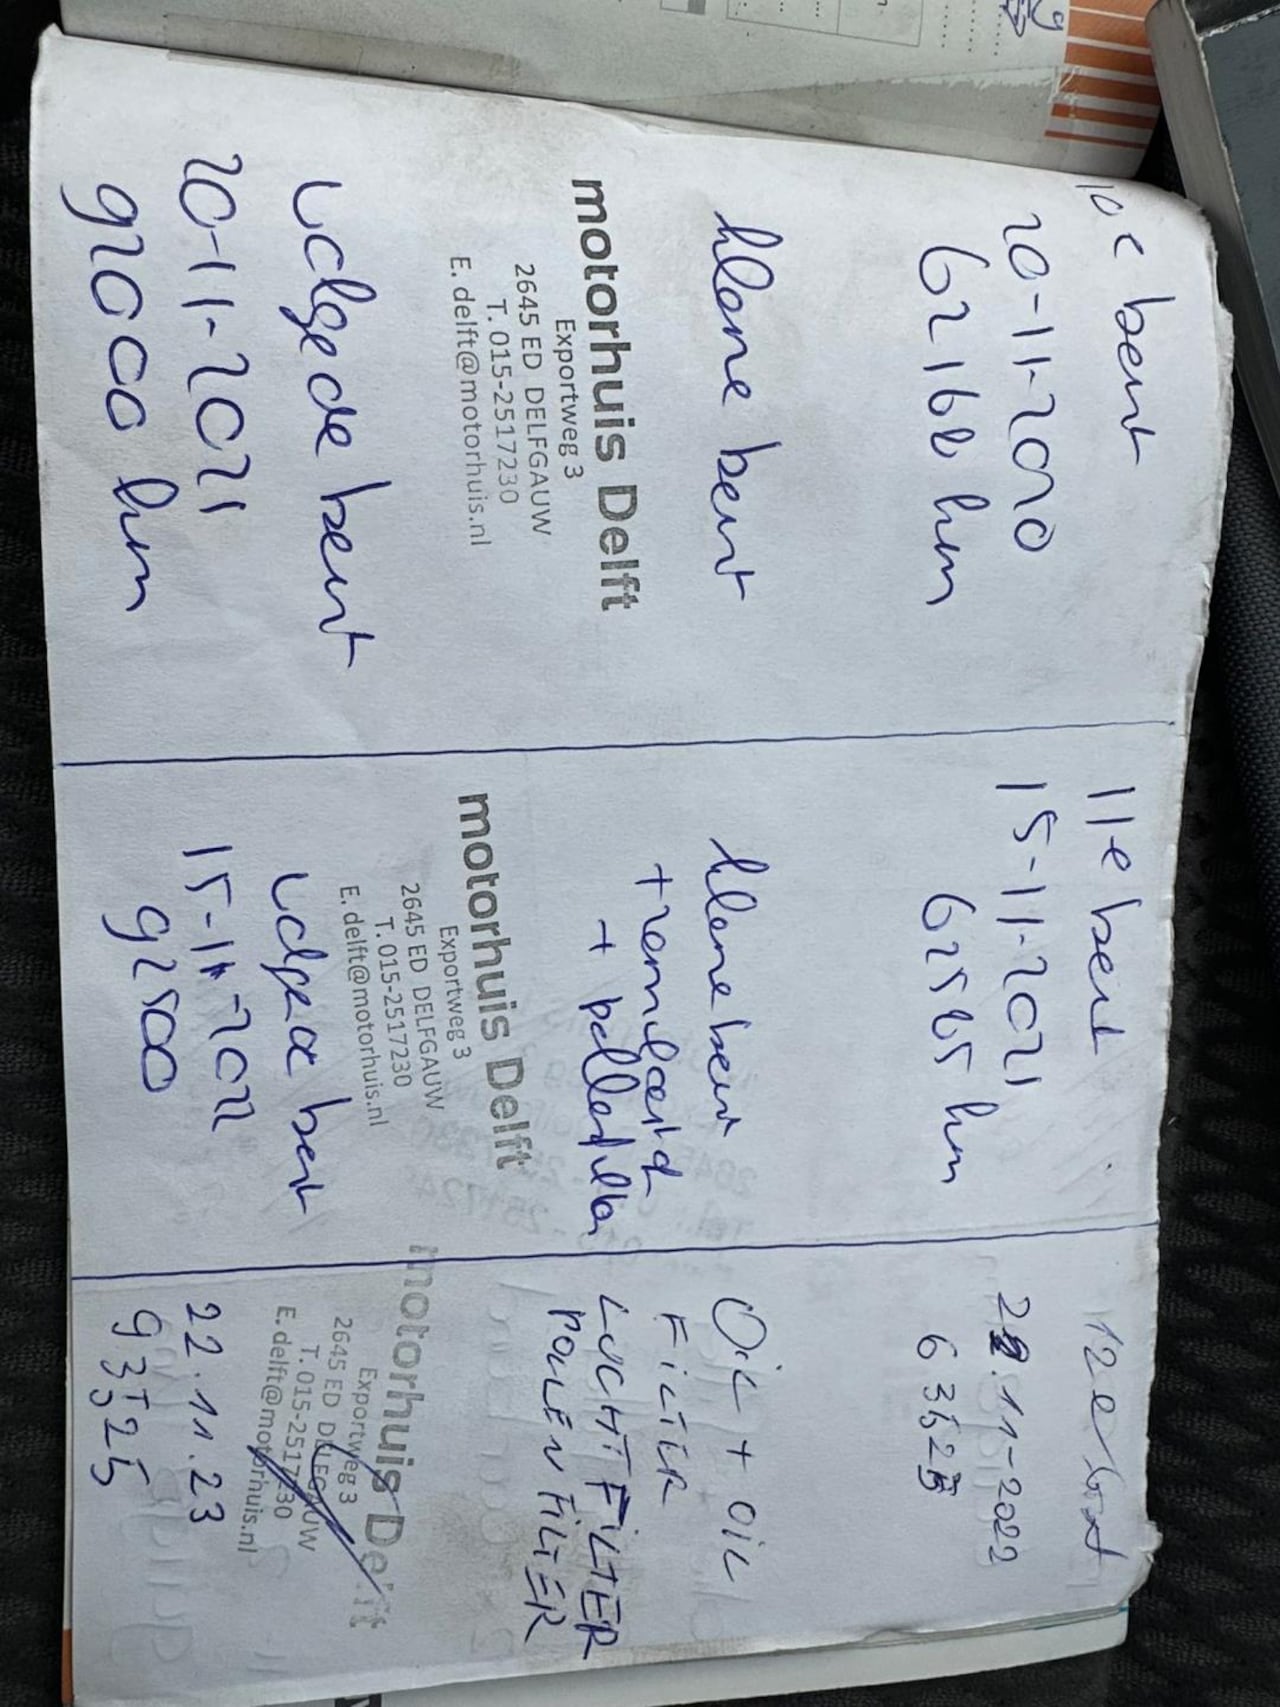 10e beurt
20-11-2020
62166 km
kleine beurt
motorhuis Delft
Exportweg 3
2645 ED DELFGAUW
T. 015-2517230
E. delft@motorhuis.nl
volgende beurt
20-11-2021
92000 km
11e beurt
15-11-2021
62565 km
kleine beurt
+ remvloeistof
+ pollenfilter
motorhuis Delft
Exportweg 3
2645 ED DELFGAUW
T. 015-2517230
E. delft@motorhuis.nl
volgende beurt
15-11-2022
92500
12e brt
11-2022
OiL + OiL
FiLTER
LUCHTFiLTER
POLLEN FiLTER
motorhuis Delft
Exportweg 3
2645 ED DELFGAUW
T. 015-2517230
E. delft@motorhuis.nl
22.11.23
93525